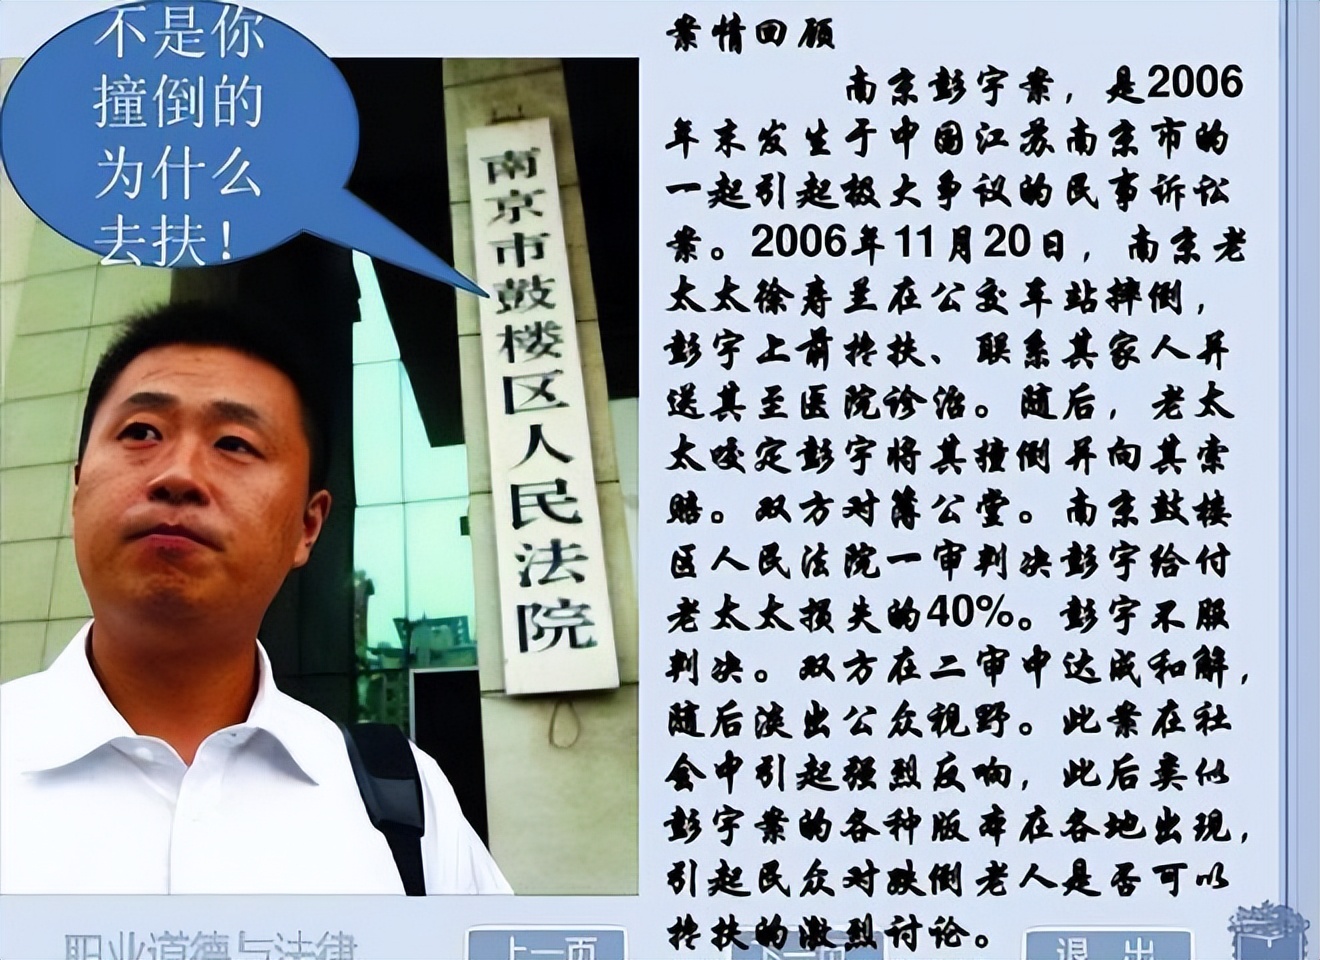 不是你
撞倒的
为什么
去扶！
南京市鼓楼区人民法院
案情回顾
南京彭宇案，是2006
年末发生于中国江苏南京市的
一起引起极大争议的民事诉讼
案。2006年11月20日，南京老
太太徐寿兰在公交车站摔倒，
彭宇上前搀扶、联系其家人并
送其至医院诊治。随后，老太
太咬定彭宇将其撞倒并向其索
赔。双方对簿公堂。南京鼓楼
区人民法院一审判决彭宇给付
老太太损失的40%。彭宇不服
判决。双方在二审中达成和解，
随后淡出公众视野。此案在社
会中引起强烈反响，此后类似
彭宇案的各种版本在各地出现，
引起民众对跌倒老人是否可以
搀扶的激烈讨论。
职业道德与法律
上一页
下一页
退 出